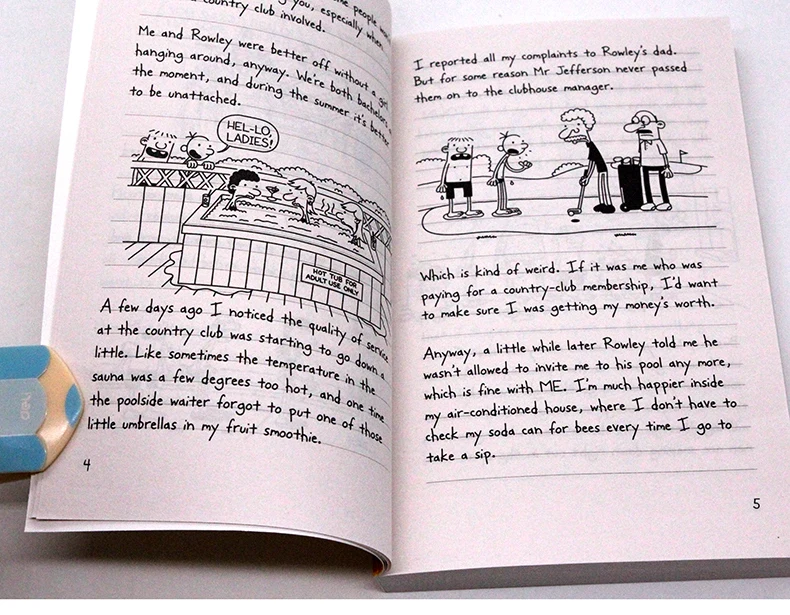 you, especially when
country club involved.
Me and Rowley were better off without a girl
hanging around, anyway. We're both bachelors at
the moment, and during the summer it's better
to be unattached.
HEL-LO,
LADIES!
HOT TUB FOR
ADULT USE ONLY
A few days ago I noticed the quality of service
at the country club was starting to go down a
little. Like sometimes the temperature in the
sauna was a few degrees too hot, and one time
the poolside waiter forgot to put one of those
little umbrellas in my fruit smoothie.
4
I reported all my complaints to Rowley's dad.
But for some reason Mr Jefferson never passed
them on to the clubhouse manager.
Which is kind of weird. If it was me who was
paying for a country-club membership, I'd want
to make sure I was getting my money's worth.
Anyway, a little while later Rowley told me he
wasn't allowed to invite me to his pool any more,
which is fine with ME. I'm much happier inside
my air-conditioned house, where I don't have to
check my soda can for bees every time I go to
take a sip.
5